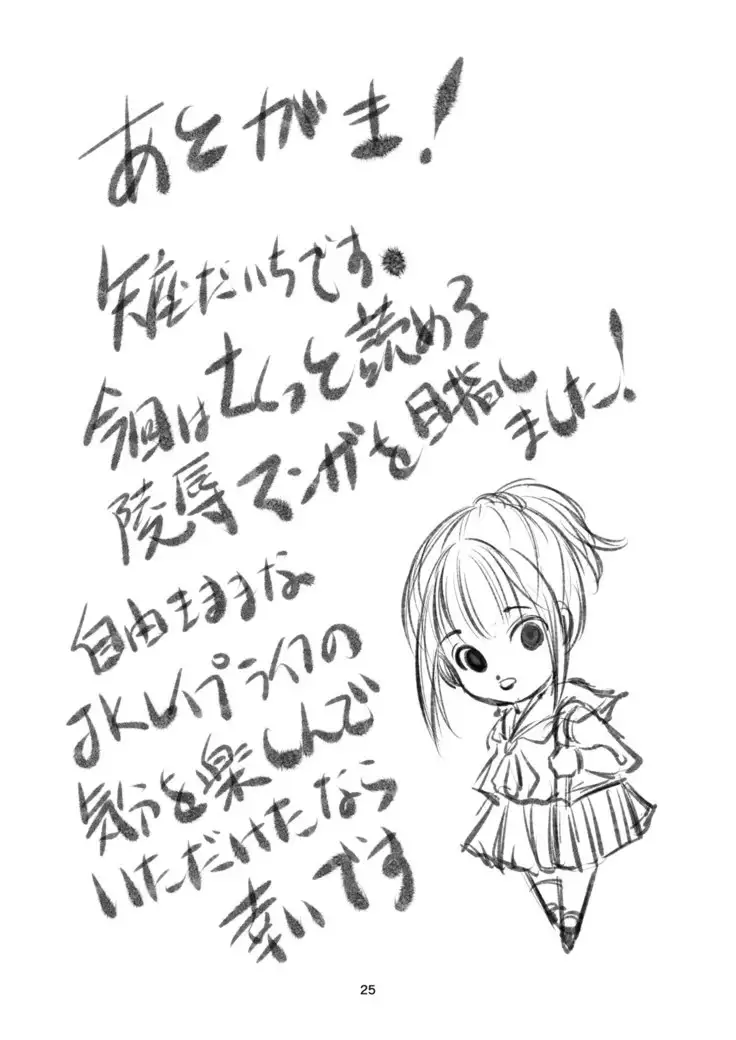 あとがき！
矢座だいちです。
今回はさくっと読める
陵辱マンガを目指し
ました！
自由きままな
JKレイプライフの
気分を楽しんで
いただけたなら
幸いです
25